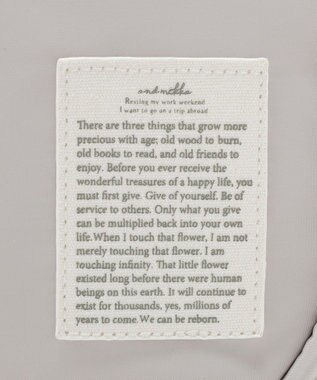 and mekko
Resting my work weekend
I want to go on a trip abroad
There are three things that grow more
precious with age; old wood to burn,
old books to read, and old friends to
enjoy. Before you ever receive the
wonderful treasures of a happy life, you
must first give. Give of yourself. Be of
service to others. Only what you give
can be multiplied back into your own
life.When I touch that flower, I am not
merely touching that flower. I am
touching infinity. That little flower
existed long before there were human
beings on this earth. It will continue to
exist for thousands, yes, millions of
years to come.We can be reborn.